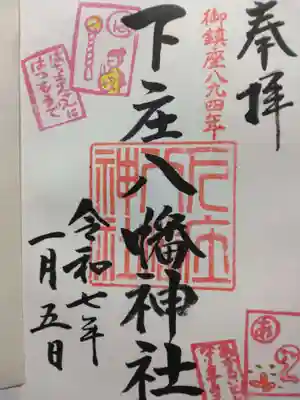 奉拝
御鎮座八九四年
下庄八幡神社
令和七年
一月五日